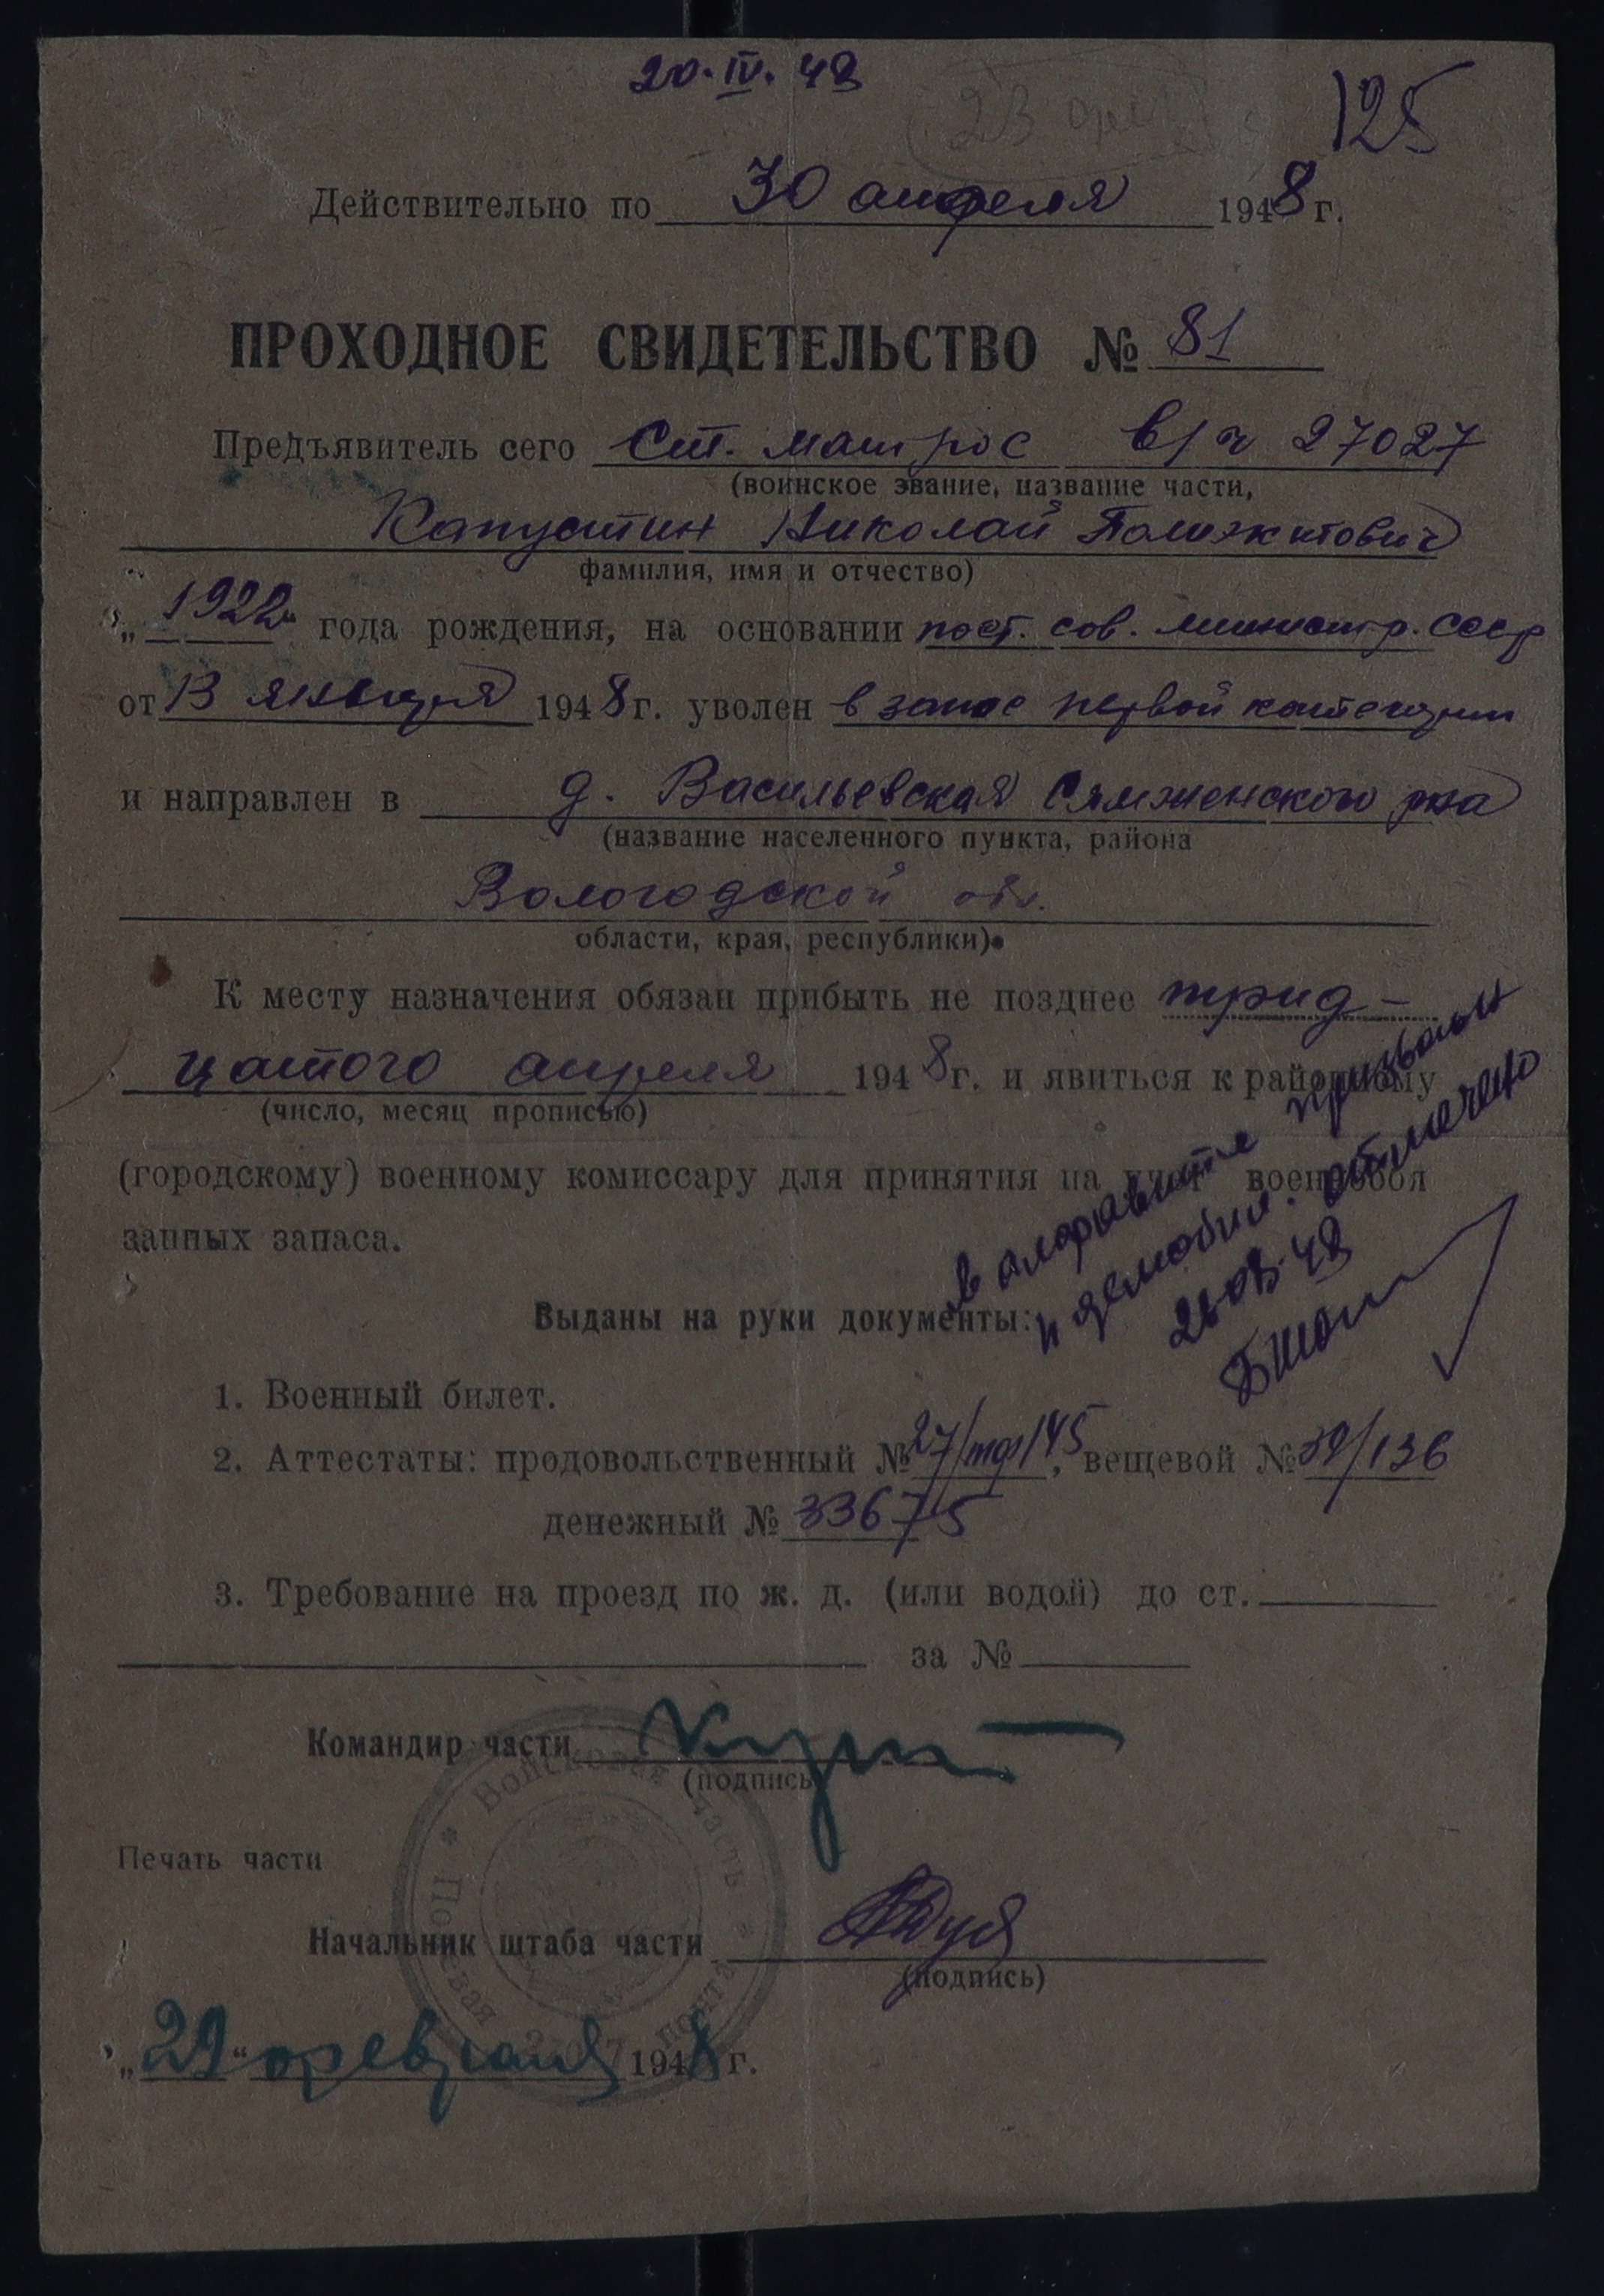 20.IV.48
125
Действительно по 30 апреля 1948 г.
ПРОХОДНОЕ СВИДЕТЕЛЬСТВО № 81
Предъявитель сего Ст. матрос в/ч 27027
(воинское звание, название части,
Капустин Николай
фамилия, имя и отчество)
„ 1922 года рождения, на основании пост. сов. министр. СССР
от 13 января 1948 г. уволен в запас первой категории
и направлен в д. Васильевская Сямженского р-на
(название населенного пункта, района
Вологодской обл.
области, края, республики).
К месту назначения обязан прибыть не позднее трид-
цатого апреля 1948 г. и явиться к районному
(число, месяц прописью)
(городскому) военному комиссару для принятия на учет военнообя
занных запаса.
в алфавите призванных
и демобил. отмечено
48
Выданы на руки документы:
1. Военный билет.
2. Аттестаты: продовольственный № 27/ /45, вещевой № 39/136
денежный № 33675
3. Требование на проезд по ж. д. (или водой) до ст.
за №
Командир части
(подпись)
Войсковая часть
Полевая почта
Печать части
Начальник штаба части
(подпись)
„29“ февраля 1948 г.